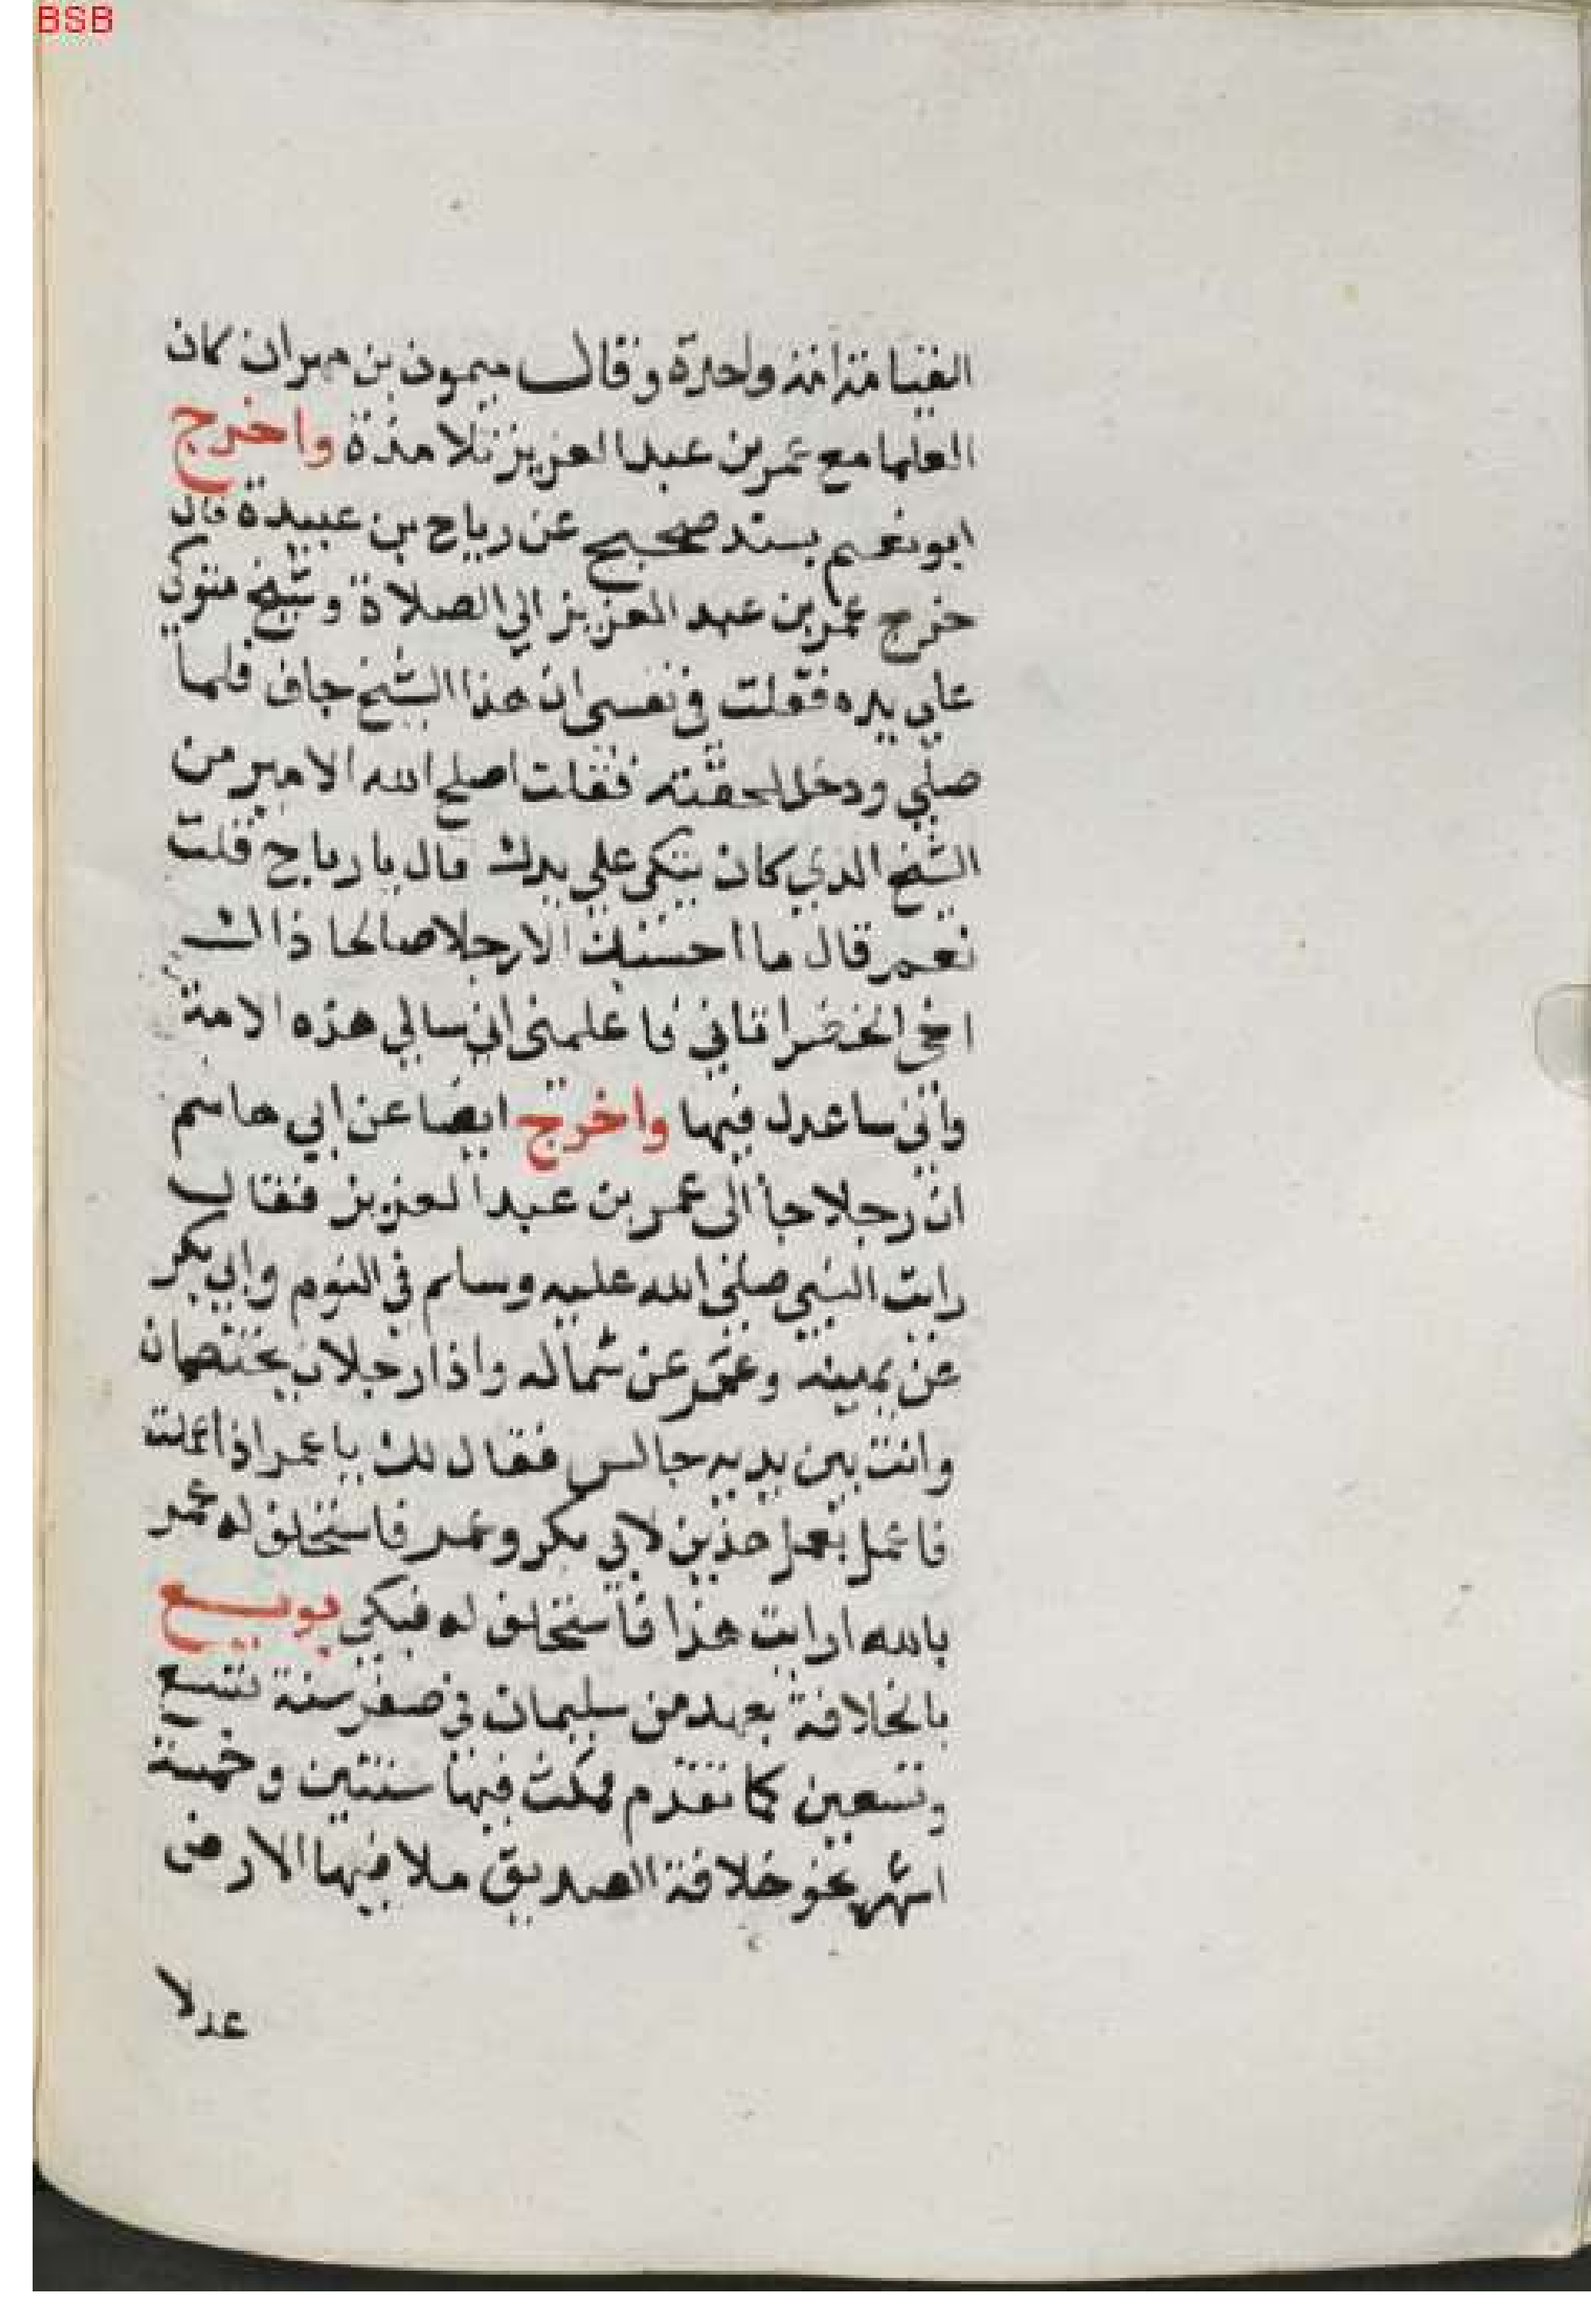 BSB
القيامة امة واحدة وقال ميمون بن مهران كان
العلما مع عمر بن عبد العزيز تلامذة واخرج
ابو نعيم بسند صحيح عن رياح بن عبيدة قال
خرج عمر بن عبد العزيز الي الصلاة وشيخ متوكي
علي يده فقلت في نفسي ان هذا الشيخ جاف فلما
صلي ودخل لحقته فقلت اصلح الله الامير من
الشيخ الذي كان يتكي علي يدك قال يا رياح قلت
نعم قال ما احسبك الا رجلا صالحا ذاك
اخي الخضر اتاني فاعلمني اني سالي هذه الامة
واني ساعدل فيها واخرج ايضا عن ابي هاشم
ان رجلا جا الى عمر بن عبد العزيز فقال
رايت النبي صلى الله عليه وسلم في النوم وابي بكر
عن يمينه وعمر عن شماله واذا رجلان يختصمان
وانت بين يديه جالس فقال لك يا عمر اذا عملت
فاعمل بعمل هذين لابي بكر وعمر فاستحلف له عمر
بالله ارايت هذا فاستحلف له فبكي بويع
بالخلافة بعهد من سليمان في صفر سنة تسع
وتسعين كما تقدم فمكث فيها سنتين وخمسة
اشهر نحو خلافة الصديق ملا فيها الارض
عدلا